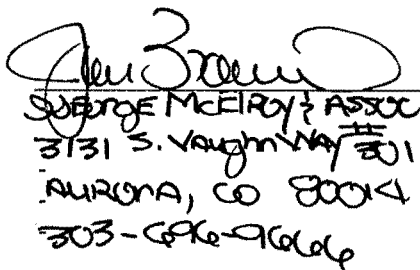 George McElroy & Assoc
3131 S. Vaughn Way # 301
Aurora, CO 80014
303-696-9666